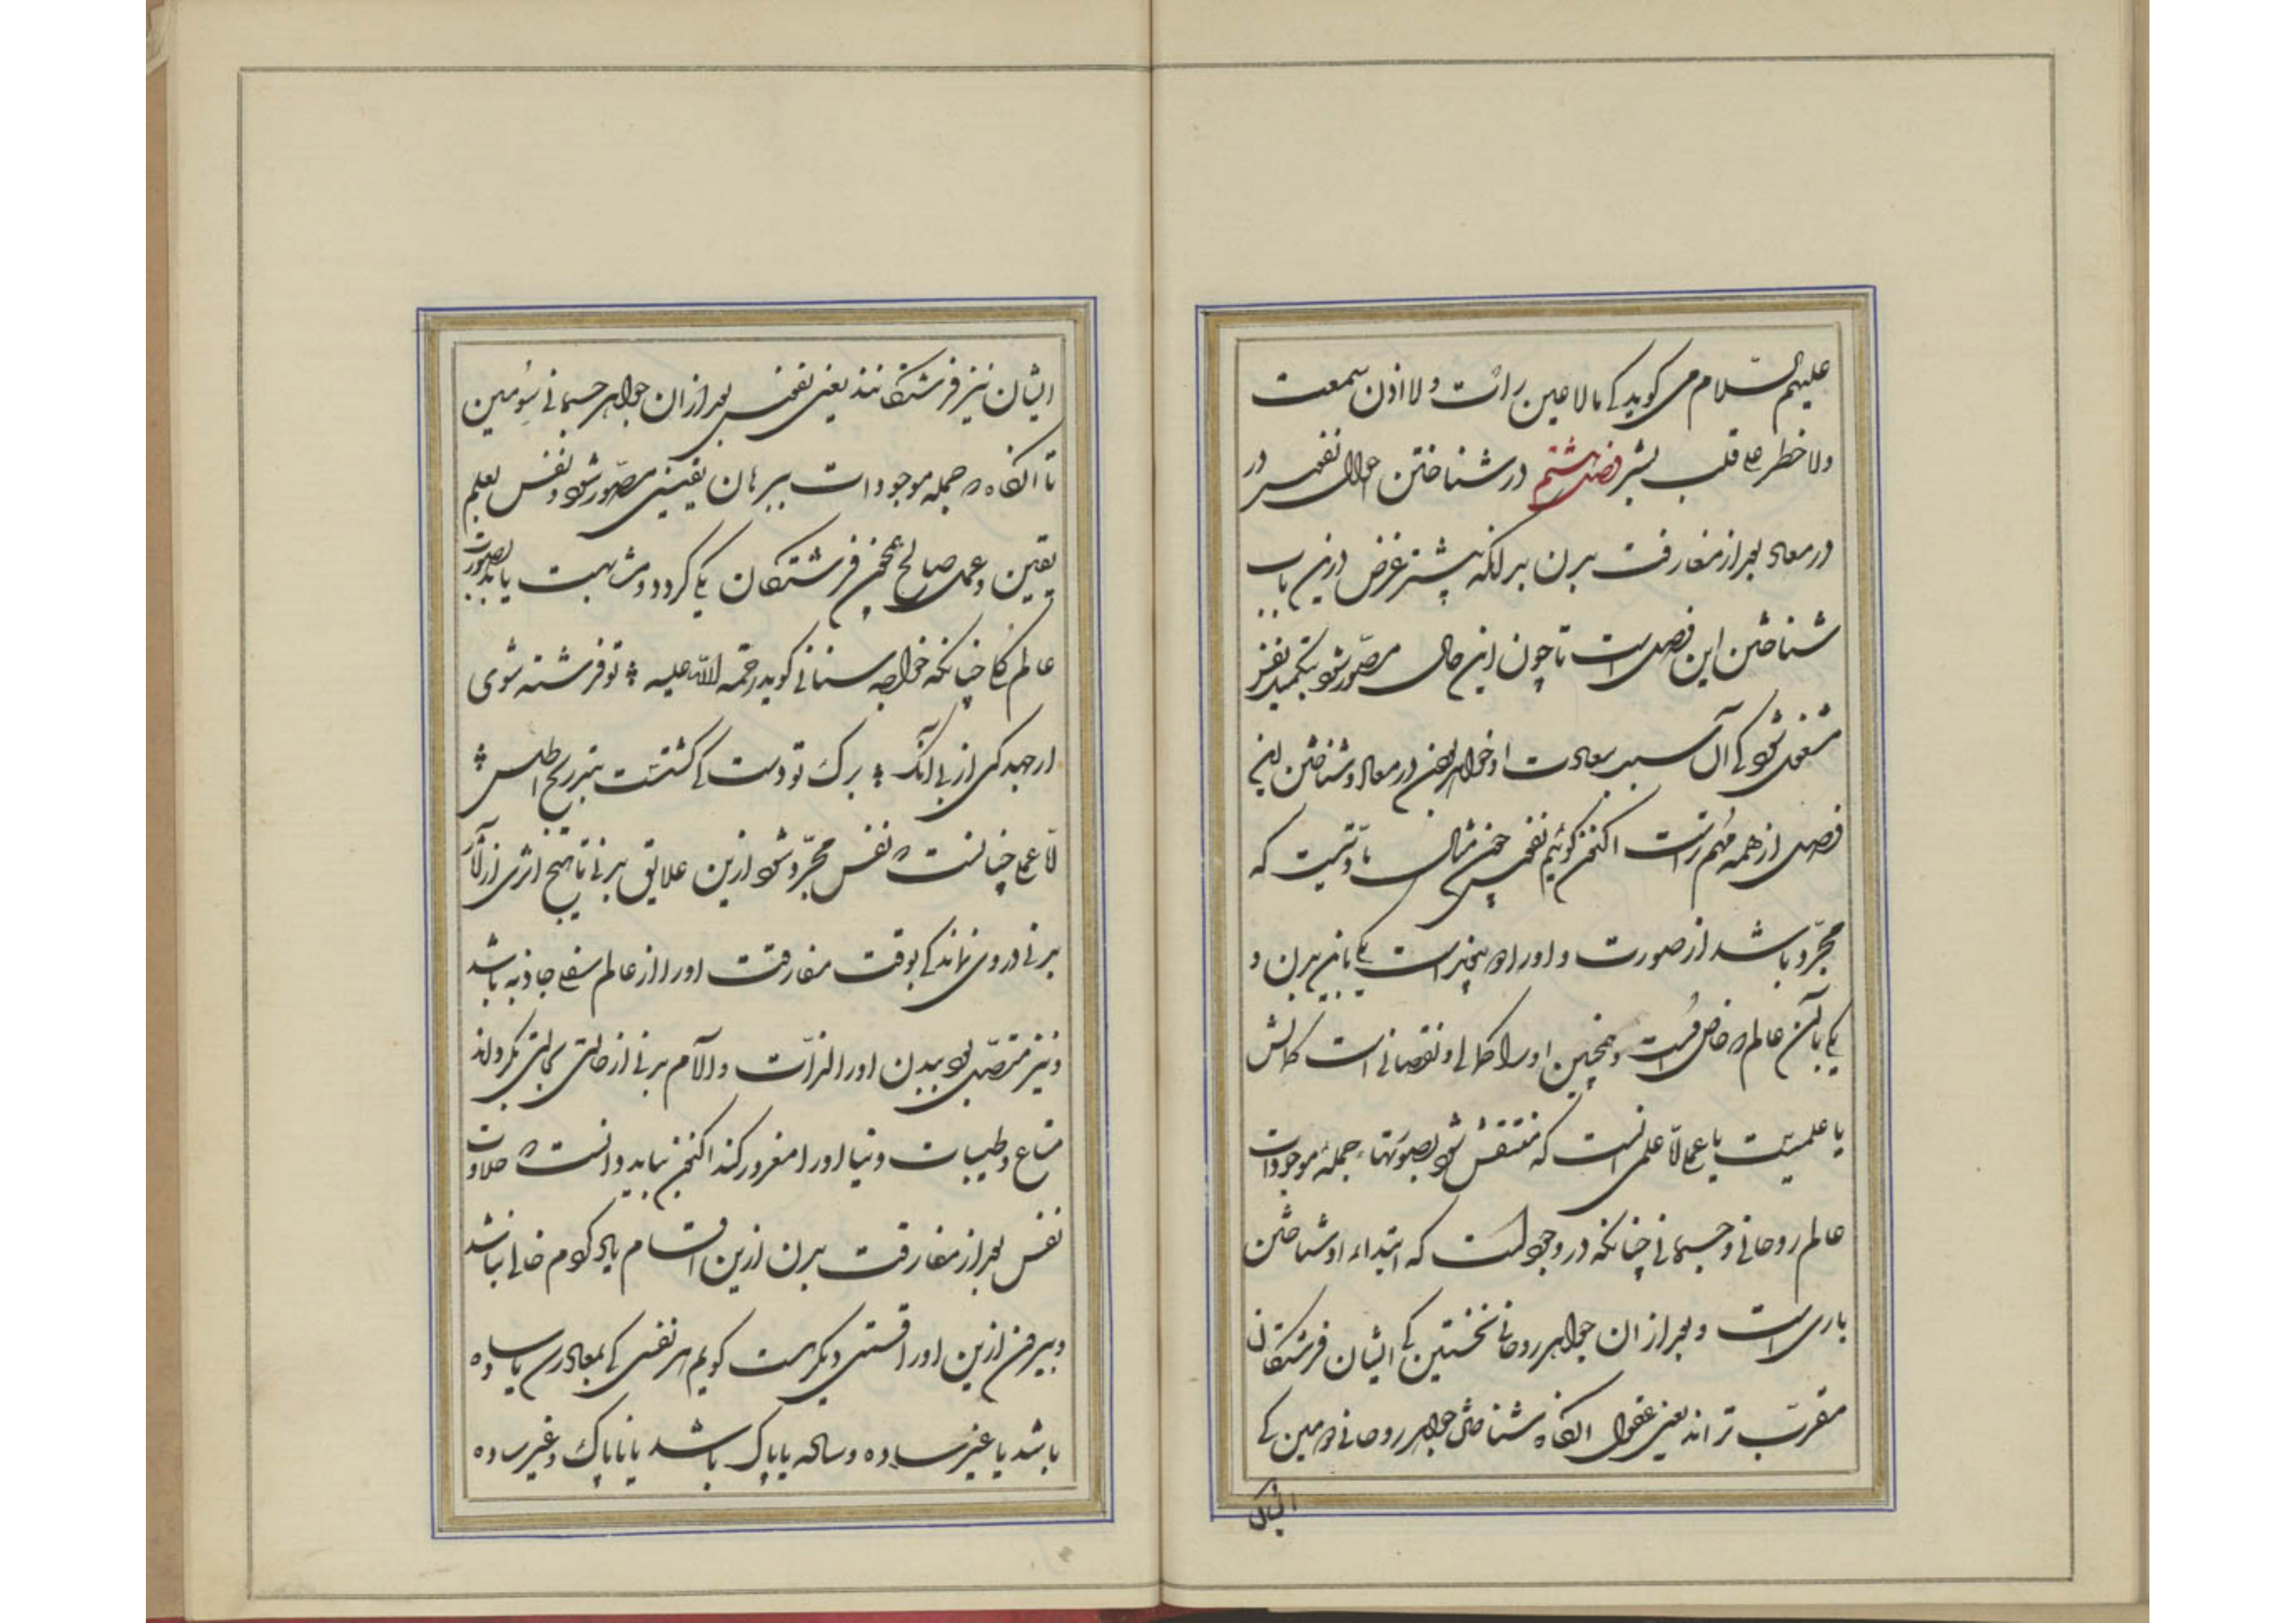 علیهم السّلام می کوید که مالا عین رات ولا اذن سمعت
ولا خطر علی قلب بشر فصل هشتم در شناختن احوال نفس در
در معاد بعد از مفارقت بدن بدانکه بیشتر غرض درین باب
شناختن این فصل است تا چون این حال مصّور شود بتکمیل نفس
مشغول شود که آن سبب سعادت او خواهد بودن در معاد و شناختن این
فصل از همه مهم تر است اکنون کوئیم نفس چون مثال مادّتیست که
مجّرد باشد از صورت و او را دو چیز است یکی باین بدن و
یکی بآن عالم که خاص است و همچنین او را کمالی و نقصانی است کمالش
یا علمیّست یا عملی امّا علمی آنست که منتقش شود بصورتهاء جملهٔ موجودات
عالم روحانی و جسمانی چنانکه در وجود است که ابتداء او شناختن
باری است و بعد از ان جواهر روحانی نخستین که ایشان فرشتکان
مقرّب تر اند یعنی عقول انکاه شناختن جواهر روحانی دومین که
ایشان
ایشان نیز فرشتکانند یعنی نفوس بعد از ان جواهر جسمانی سومین
تا انکاه که جمله موجودات ببرهان یقینی مصّور شود و نفس بعلم
یقین و عمل صالح همچون فرشتکان یکی کردد و مشابهت یابد بصورت
عالم کل چنانکه خواجه سنائی کوید رحمة الله علیه تو فرشته شوی
ار جهد کنی از پی آنک برک توتست که کشتست بتدریج اطلس
امّا عملی چنانست که نفس مجّرد شود ازین علایق بدنی تا هیچ اثری از آثار
بدنی در وی نماند که بوقت مفارقت او را از عالم سفلی جاذبه باشد
و نیز متصّل بود ببدن او را لذّات و الآم بدنی از حالتی بحالتی نکرداند
متاع و طیبات دنیا او را مغرور کند اکنون بباید دانست که حالات
نفس بعد از مفارقت بدن ازین اقسام یاد کردم خالی نباشد
و بیرون ازین او را قسمتی دیکر است کویم هر نفسی که بمعاد رسد یا ساده
باشد یا غیر ساده و ساده یا پاک باشد یا ناپاک و غیر ساده